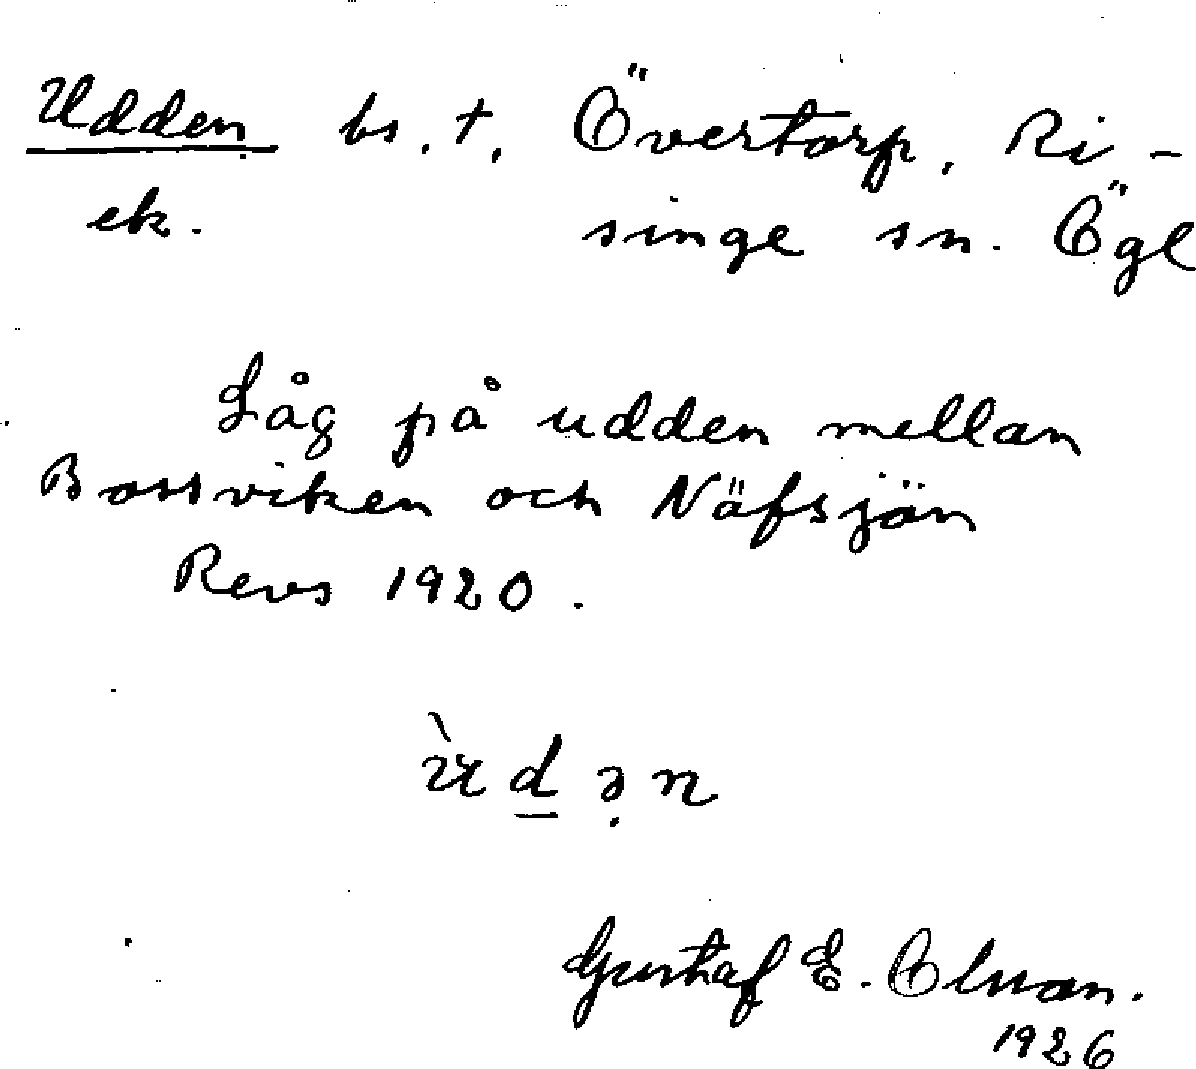 Udden bs. t. Övertorp, Ri-
ek. singe sn. Ögl
Låg på udden mellan
Bossviken och Näfsjön
Revs 1920.
Gustaf E. Olsson.
1926